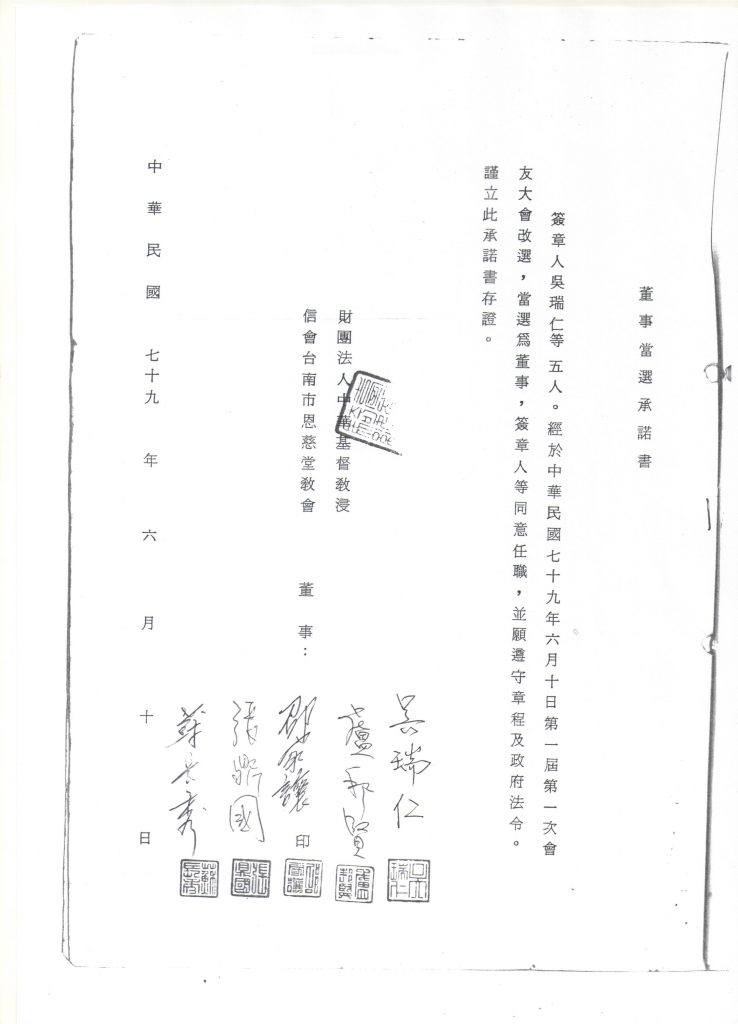 董事當選承諾書
簽章人吳瑞仁等 五人。經於中華民國七十九年六月十日第一屆第一次會
友大會改選，當選爲董事，簽章人等同意任職，並願遵守章程及政府法令。
謹立此承諾書存證。
財團法人中華基督教浸
信會台南市恩慈堂教會
董事：
吳瑞仁
盧邦賢
鄒家讓 印
張鼎國
蘇長秀
中華民國 七十九 年 六 月 十 日